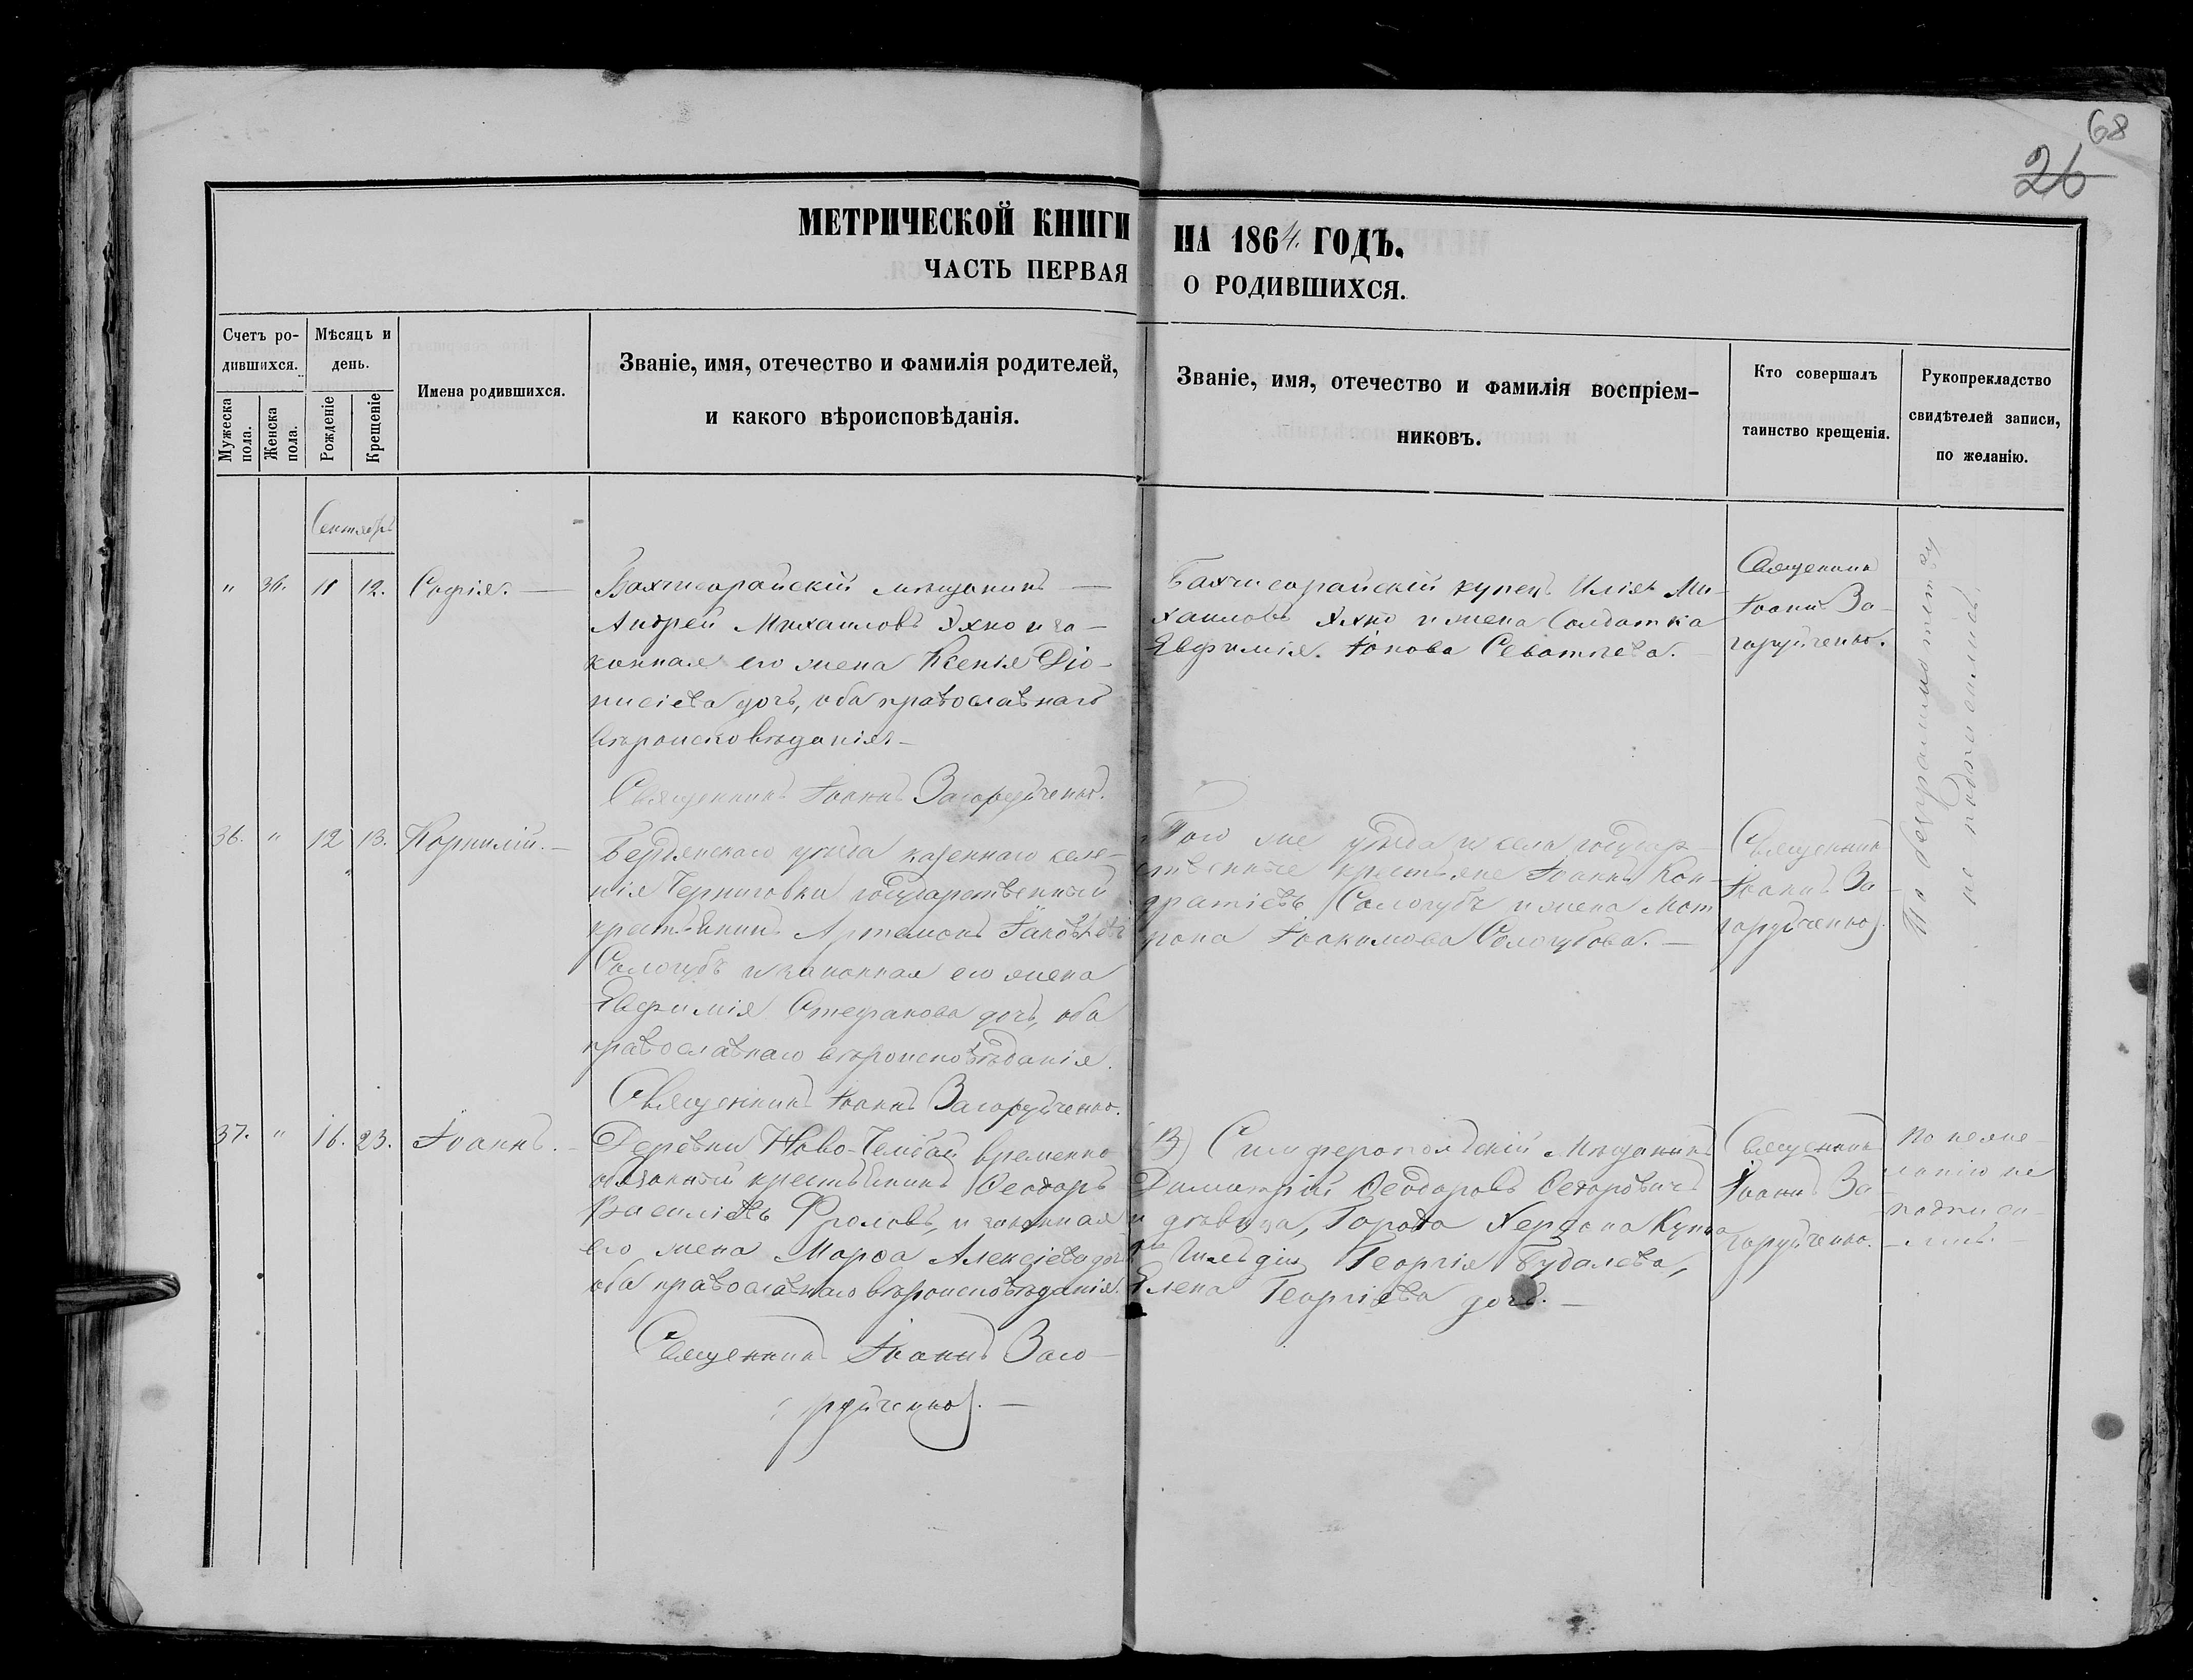 68
26
МЕТРИЧЕСКОЙ КНИГИ НА 1864. ГОДЪ.
ЧАСТЬ ПЕРВАЯ О РОДИВШИХСЯ.
Счетъ ро-
дившихся.
Мужеска
пола.
Женска
пола.
Мѣсяцъ и
день.
Рожденіе
Крещеніе
Имена родившихся.
Званіе, имя, отечество и фамилія родителей,
и какого вѣроисповѣданія.
Званіе, имя, отечество и фамилія воспріем-
никовъ.
Кто совершалъ
таинство крещенія.
Рукоприкладство
свидѣтелей записи,
по желанію.
Сентябрь
" 36. 11 12. Софія. —
Бахчисарайскій мѣщанинъ —
Андрей Михаиловъ и за-
конная его жена Ксенія Діо-
нисіева дочь, оба православнаго
вѣроисповѣданія. —
Священникъ Іоаннъ Загоруйченко.
Бахчисарайскій купецъ Илія Ми-
хаиловъ и жена Солдатка
Евфимія Іонова
Священникъ
Іоаннъ За-
горуйченко.
По безграмотству
не подписались.
36. " 12 13. Корнилій. —
Бердянскаго уѣзда казеннаго селе-
нія Черниговки государственный
крестьянинъ Артемонъ Іаковлевъ
Сологубъ и законная его жена
Евфимія Стефанова дочь, оба
православнаго вѣроисповѣданія.
Священникъ Іоаннъ Загоруйченко.
Того же уѣзда и села государ-
ственные крестьяне Іоаннъ Кон-
дратіевъ Сологубъ и жена Мат
рона Іоакимова Сологубова. —
Священникъ
Іоаннъ За-
горуйченко.
37. " 16. 23. Іоаннъ. —
Деревни Ново- временно
обязанный крестьянинъ Ѳеодоръ
Василіевъ Фроловъ, и законная
его жена Марѳа Алексіева дочь
оба православнаго вѣроисповѣданія.
Священникъ Іоаннъ Заго-
руйченко. —
Симферопольскій Мѣщанинъ
Димитрій Ѳеодоровъ
и дѣвица, Города Херсона Купца
Гильдіи Георгія
Елена Георгіева дочь. —
Священникъ
Іоаннъ За-
горуйченко.
По неже-
ланію не
подписа-
лись.